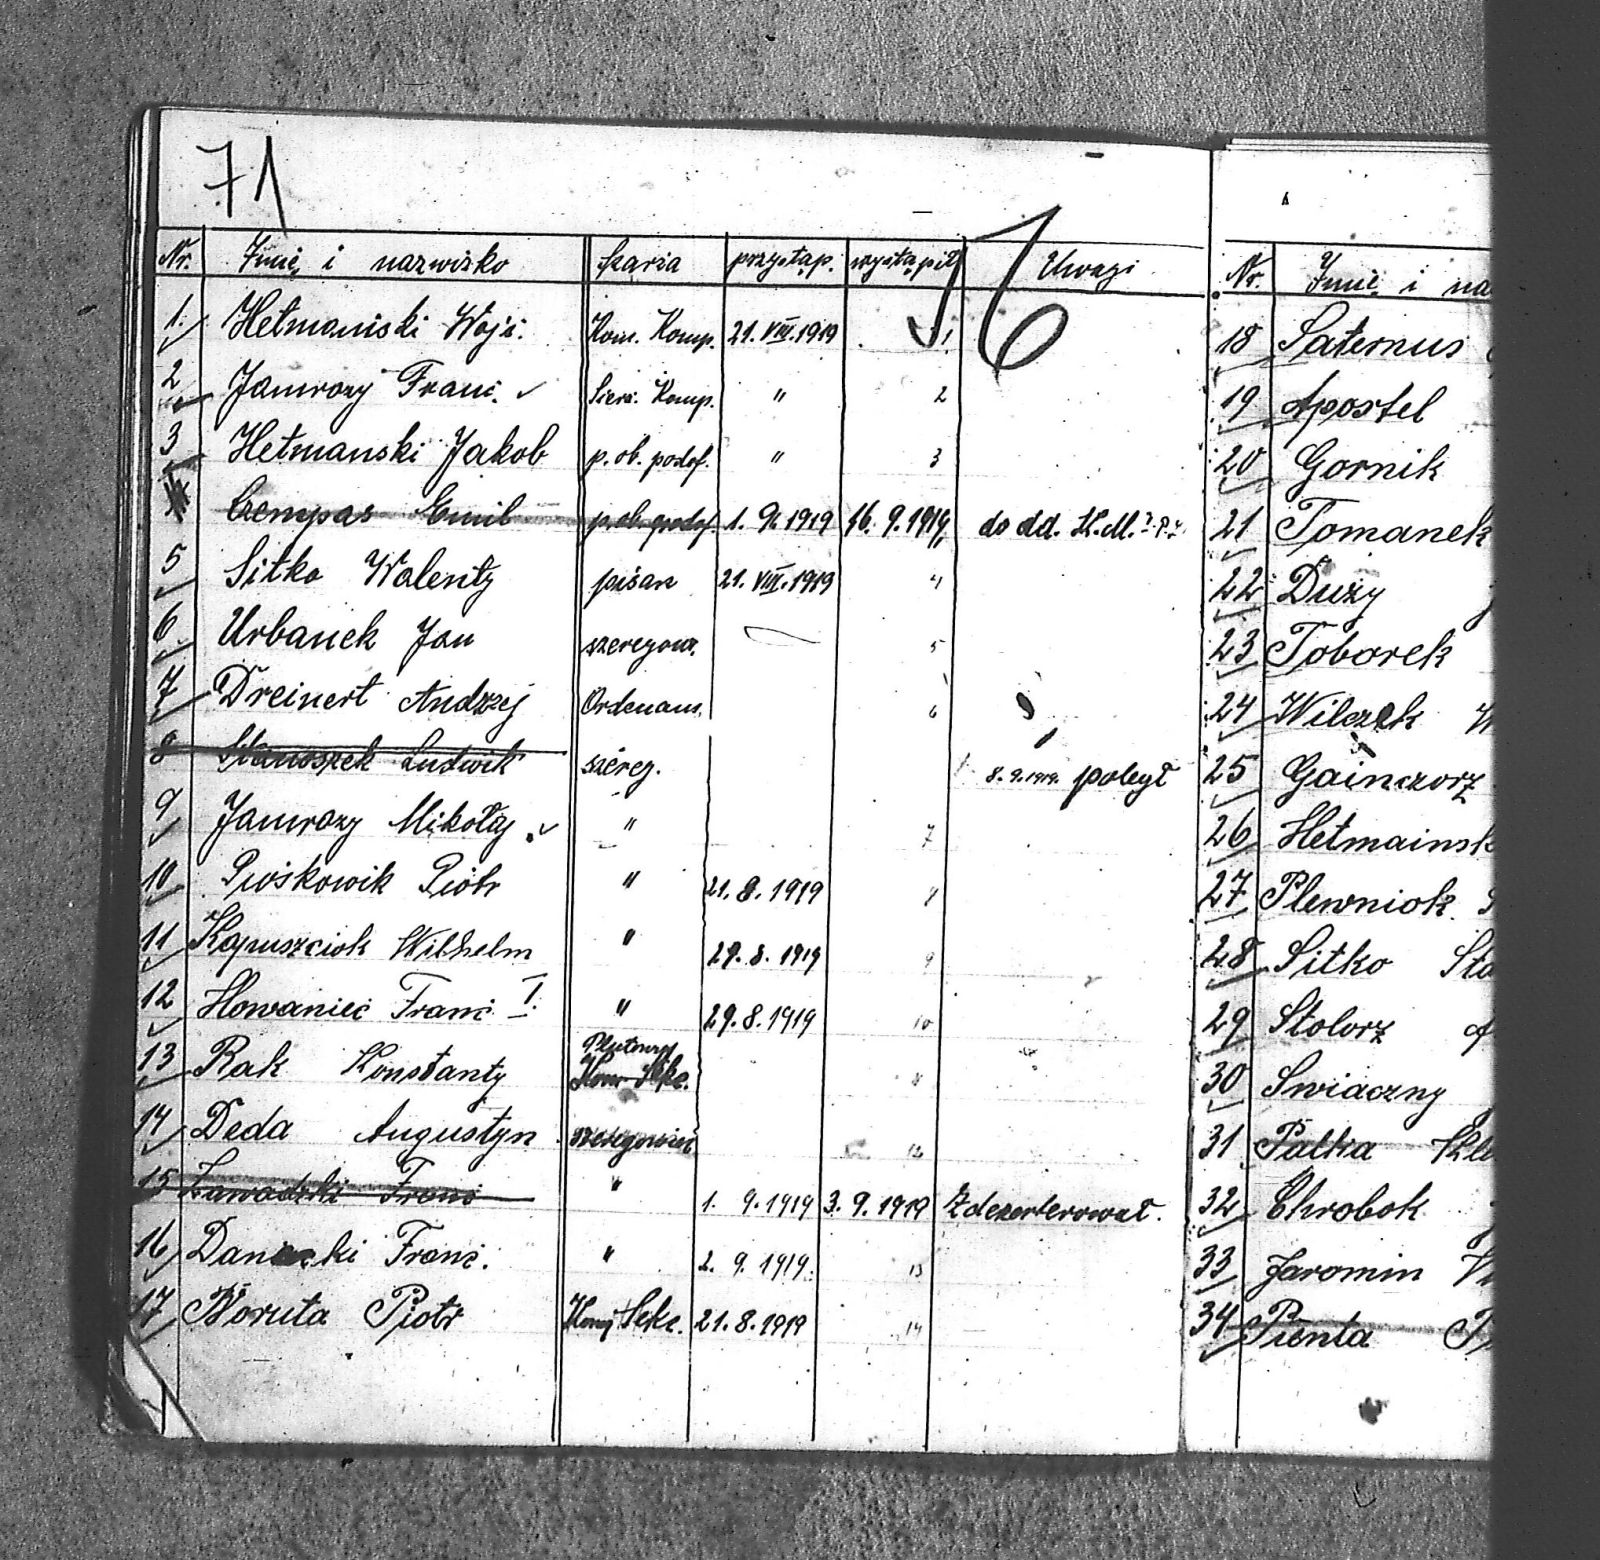 71
16
Nr. Imię i nazwisko szarża przystąp. wystąpił Uwagi
1. Hetmański Wojś. Kom. Komp. 21. VIII. 1919 1
2 Jamrozy Franć. Sierż. Komp. " 2
3 Hetmanski Jakob p. ob. podof. " 3
Czempas Emil p. ob. podof. 1. 9. 1919 16. 9. 1919 do dd. K.M.
5 Sitko Walenty pisarz 21. VIII. 1919 4
6 Urbanek Jan szeregow. 5
7 Dreinert Andrzej Ordenans. 6
8 Stanoszek Ludwik szereg. 8. 9. 1919. poległ
9 Jamrozy Mikołaj " 7
10 Piotr " 21. 8. 1919 8
11 Kapuszciok Wilhelm " 29. 8. 1919 9
12 Howaniec Franć I. " 29. 8. 1919 10
13 Rak Konstanty Kom Sekc.
14 Deda Augustyn szeregowiec 12
15 Zawadzki Franć " 1. 9. 1919 3. 9. 1919 Zdezerterował.
16 Franć. " 2. 9. 1919. 13
17 Boruta Piotr Sekc. 21. 8. 1919 14
Nr. Imię i na
18 Saternus
19 Apostel
20 Gornik
21 Tomanek
22 Duzy
23 Toborek
24 Wilczek
25 Gainczorz
26 Hetmainsk
27 Plewniok
28 Sitko Sta
29 Stolorz
30 Swiaczny
31 Palka Kle
32 Chrobok
33 Jaromin
34 Pienta